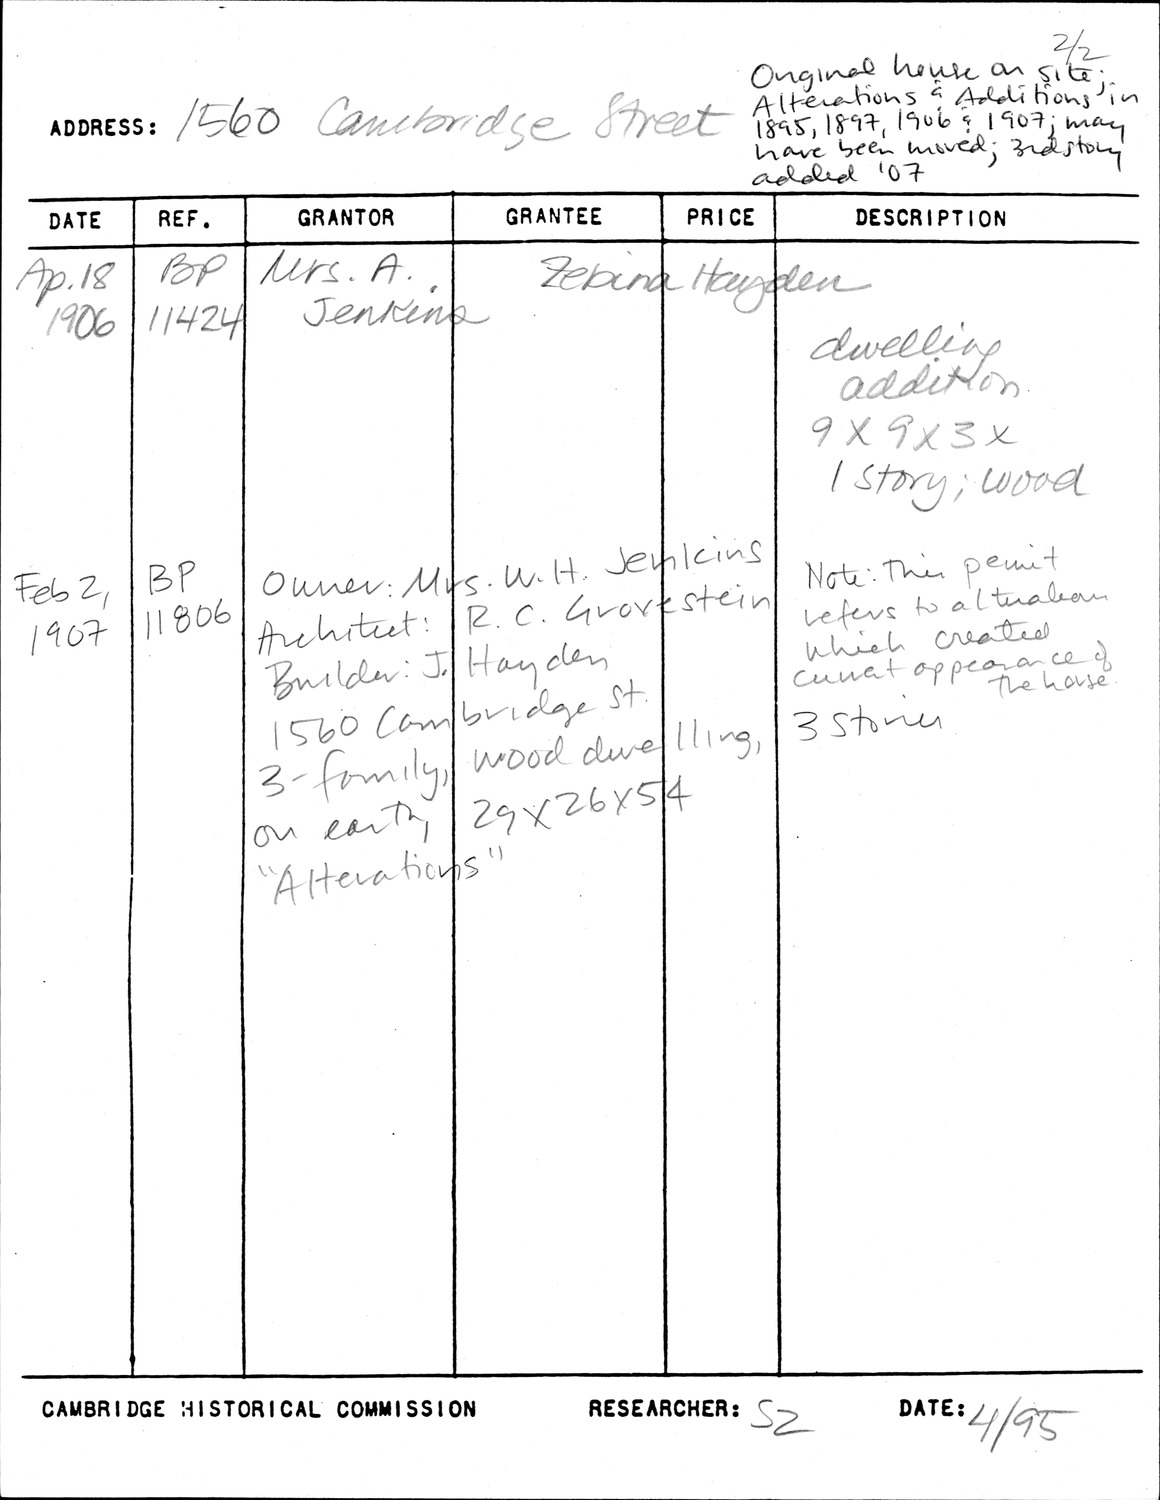 2/2
Original house on site;
Alterations & Additions in
1895, 1897, 1906 & 1907; may
have been moved; 3rd story
added '07
ADDRESS: 1560 Cambridge Street
DATE REF. GRANTOR GRANTEE PRICE DESCRIPTION
Ap. 18 BP Mrs. A. Zebina Hayden
1906 11424 Jenkins
dwelling
addition
9 X 9 X 3 X
1 story; wood
Feb 2, BP Owner: Mrs. W. H. Jenkins
1907 11806 Architect: R. C. Grovestein
Builder: J. Hayden
1560 Cambridge St.
3-family, wood dwelling,
on earth, 29 X 26 X 54
"Alterations"
Note: This permit
refers to alteration
which created
current appearance of
the house.
3 Stories
CAMBRIDGE HISTORICAL COMMISSION RESEARCHER: SZ DATE: 4/95